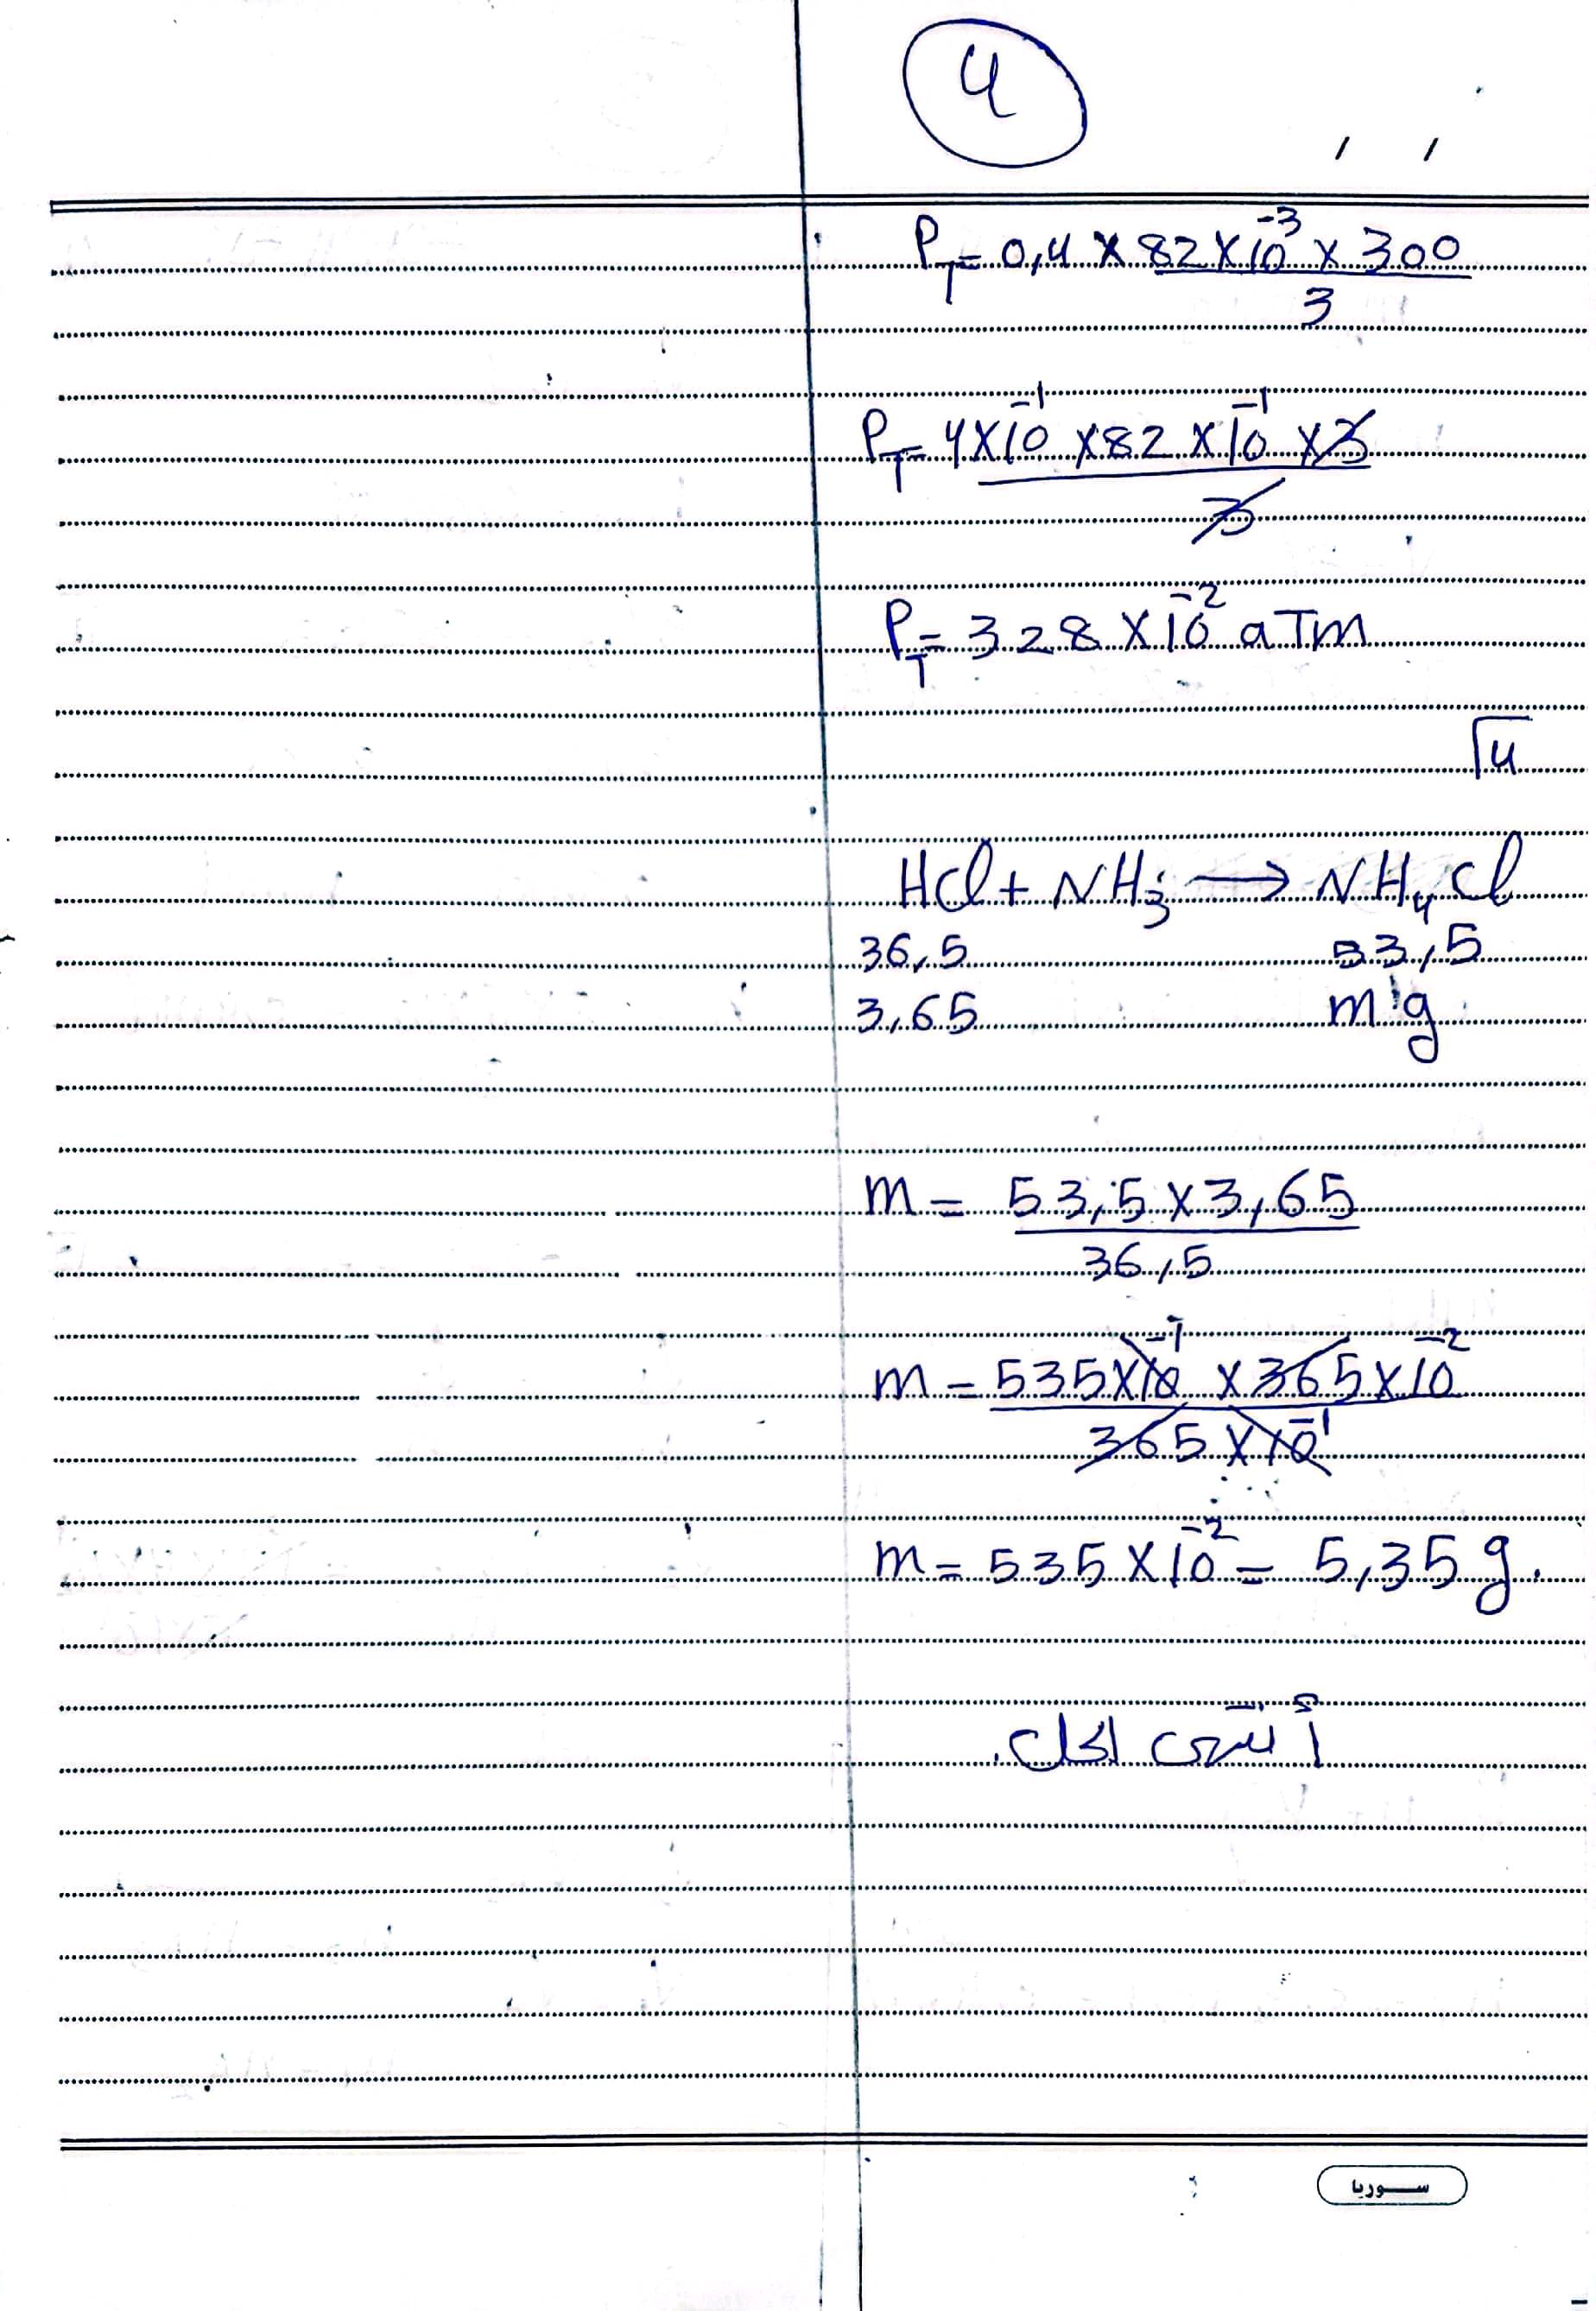 4
/ /
P_T = 0,4 × 82 × 10^-3 × 300
3
P_T = 4 × 10^-1 × 82 × 10^-1 × 3
3
P_T = 328 × 10^-2 aTm
4
HCl + NH3 → NH4Cl
36,5 53,5
3,65 m g
m = 53,5 × 3,65
36,5
m = 535 × 10^-1 × 365 × 10^-2
365 × 10^-1
m = 535 × 10^-2 = 5,35 g.
أنتهى الحل.
سوريا